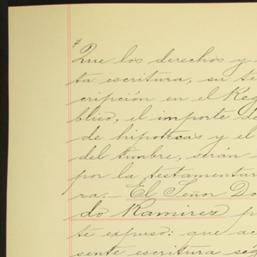 Que los derechos y
ta escritura, su te
cripción en el Reg
blico, el importe de
de hipotecas y el
del timbre, serán
por la testamentar
ra.- El Señor Do
do Ramirez p
te expuso: que ac
sente escritura seg